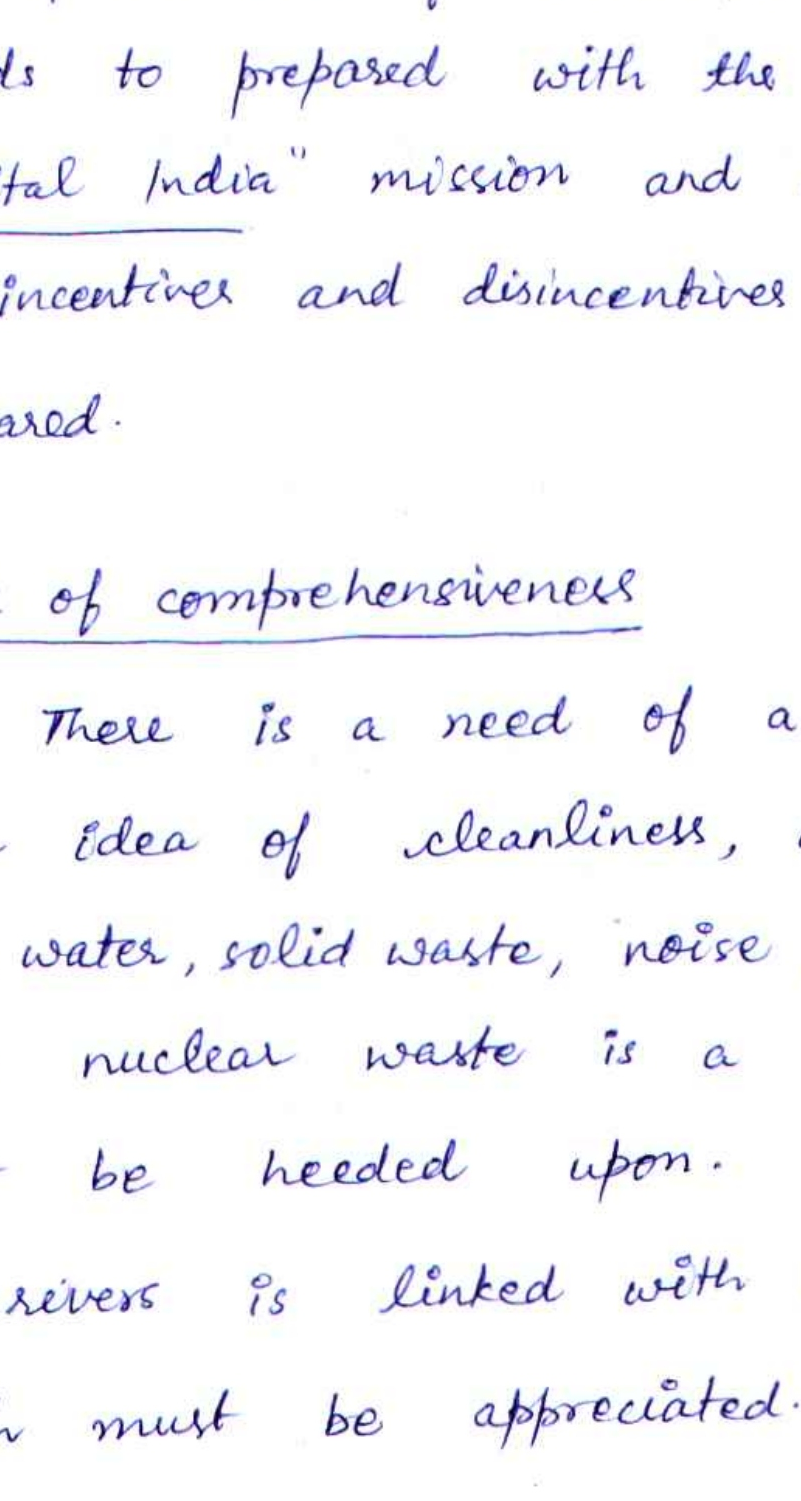 ds to prepared with the
tal India" mission and
incentives and disincentives
ared.
of comprehensiveness
There is a need of a
idea of cleanliness,
water, solid waste, noise
nuclear waste is a
be heeded upon.
rivers is linked with
must be appreciated.